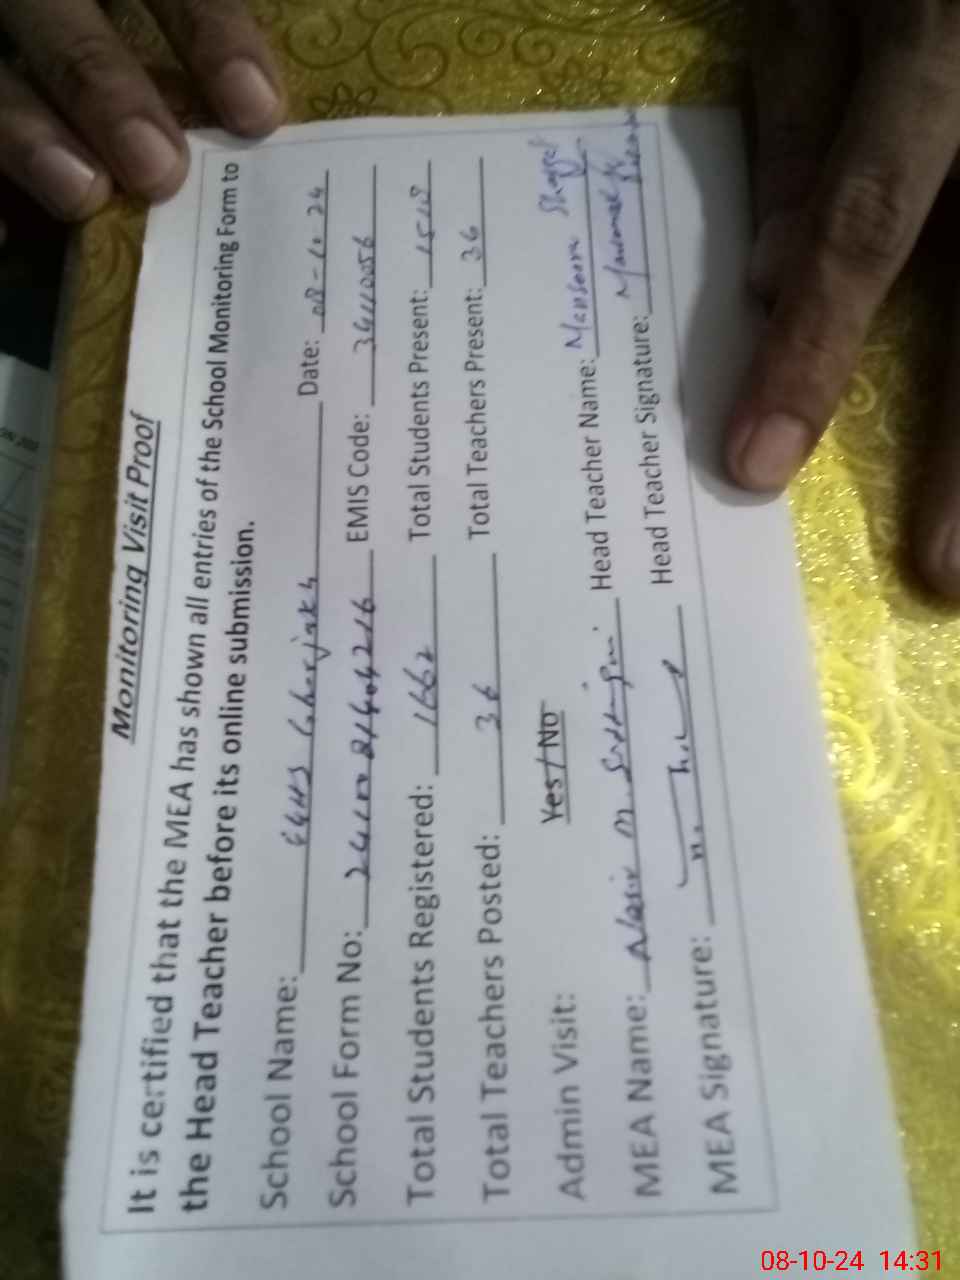 Monitoring Visit Proof
It is certified that the MEA has shown all entries of the School Monitoring Form to
the Head Teacher before its online submission.
School Name: Date: 08-10-24
School Form No: EMIS Code: 34110056
Total Students Registered: 1662 Total Students Present: 1518
Total Teachers Posted: 36 Total Teachers Present: 36
Admin Visit: Yes / No
MEA Name: Nasir M. Head Teacher Name:
MEA Signature: Head Teacher Signature:
08-10-24 14:31